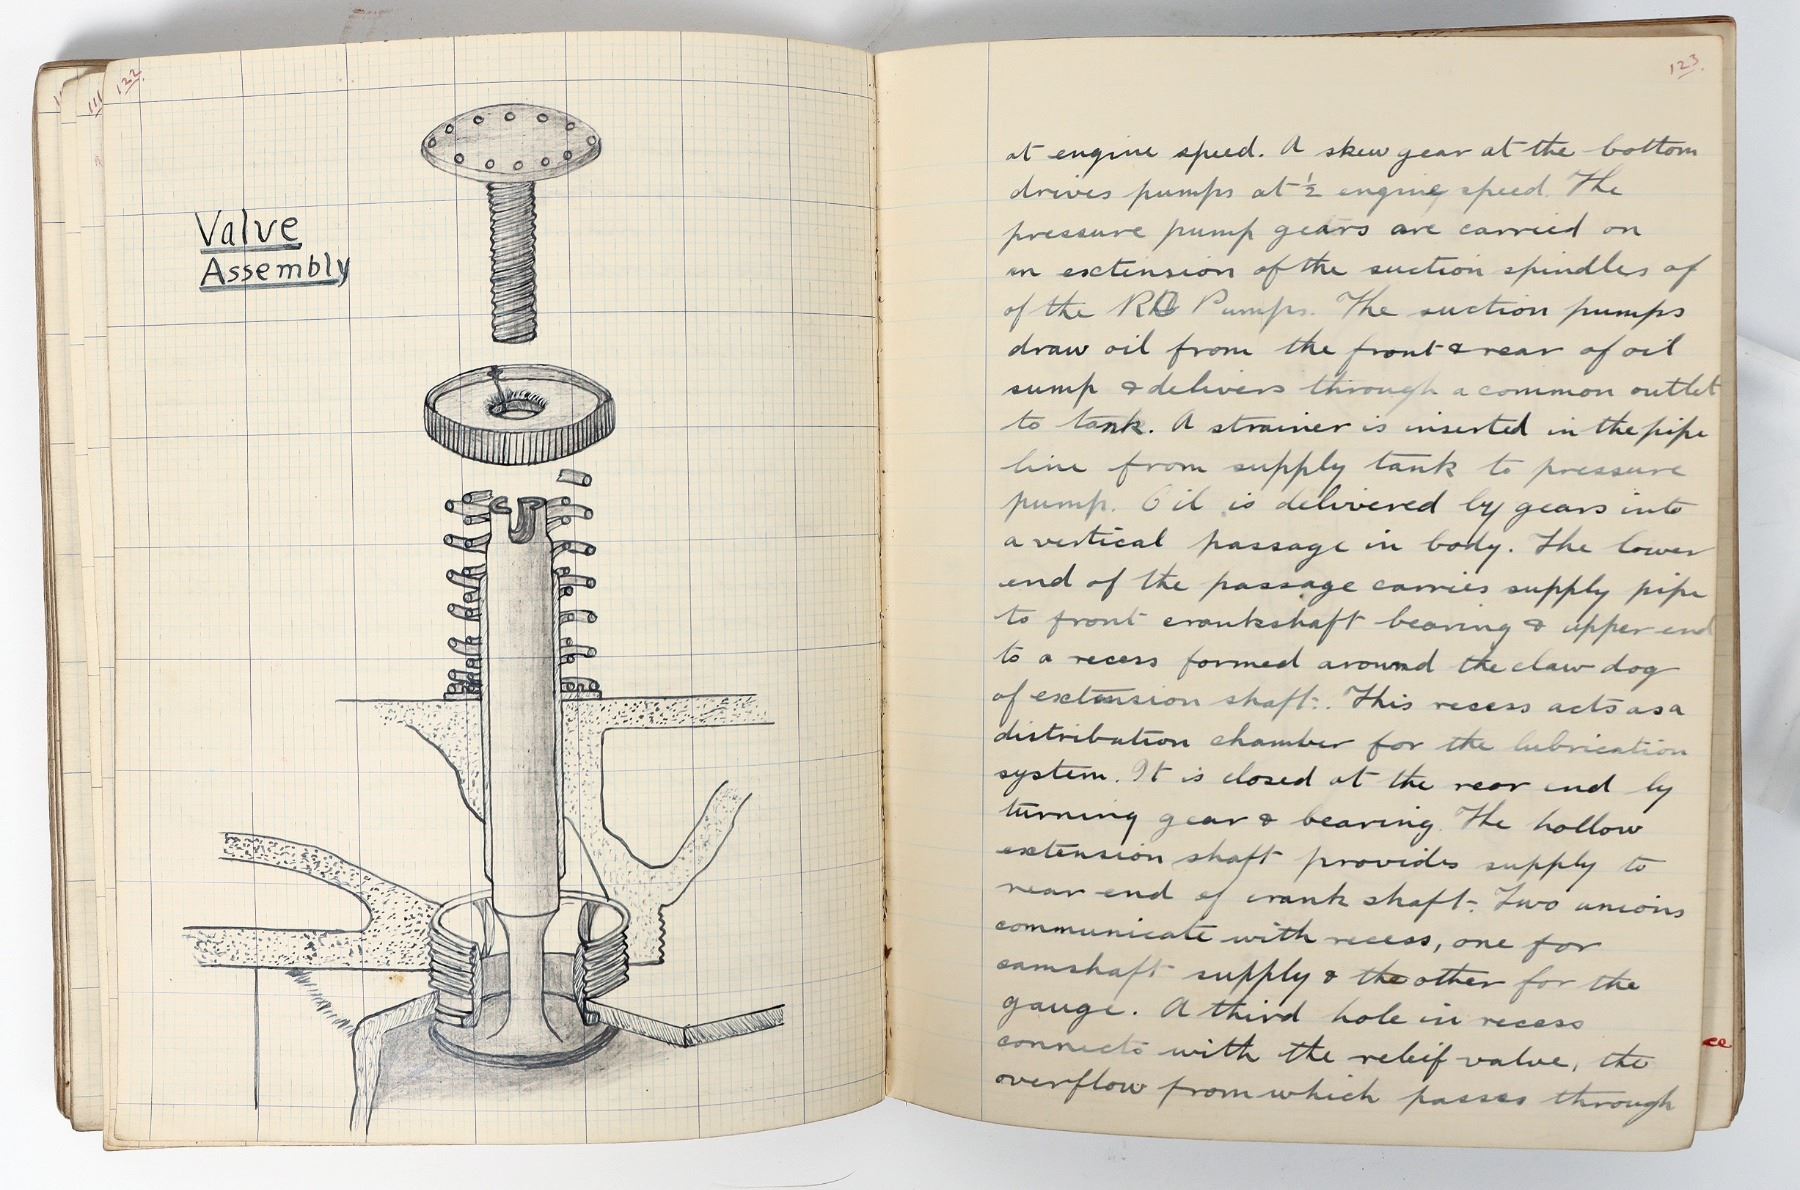 122.
111
Valve
Assembly
123.
at engine speed. A skew gear at the bottom
drives pumps at ½ engine speed. The
pressure pump gears are carried on
an extension of the suction spindles of
of the Pumps. The suction pumps
draw oil from the front & rear of oil
sump & delivers through a common outlet
to tank. A strainer is inserted in the pipe
line from supply tank to pressure
pump. Oil is delivered by gears into
a vertical passage in body. The lower
end of the passage carries supply pipe
to front crankshaft bearing & upper end
to a recess formed around the claw dog
of extension shaft. This recess acts as a
distribution chamber for the lubrication
system. It is closed at the rear end by
turning gear & bearing. The hollow
extension shaft provides supply to
rear end of crank shaft. Two unions
communicate with recess, one for
camshaft supply & the other for the
gauge. A third hole in recess
connects with the releif valve, the
overflow from which passes through
ce